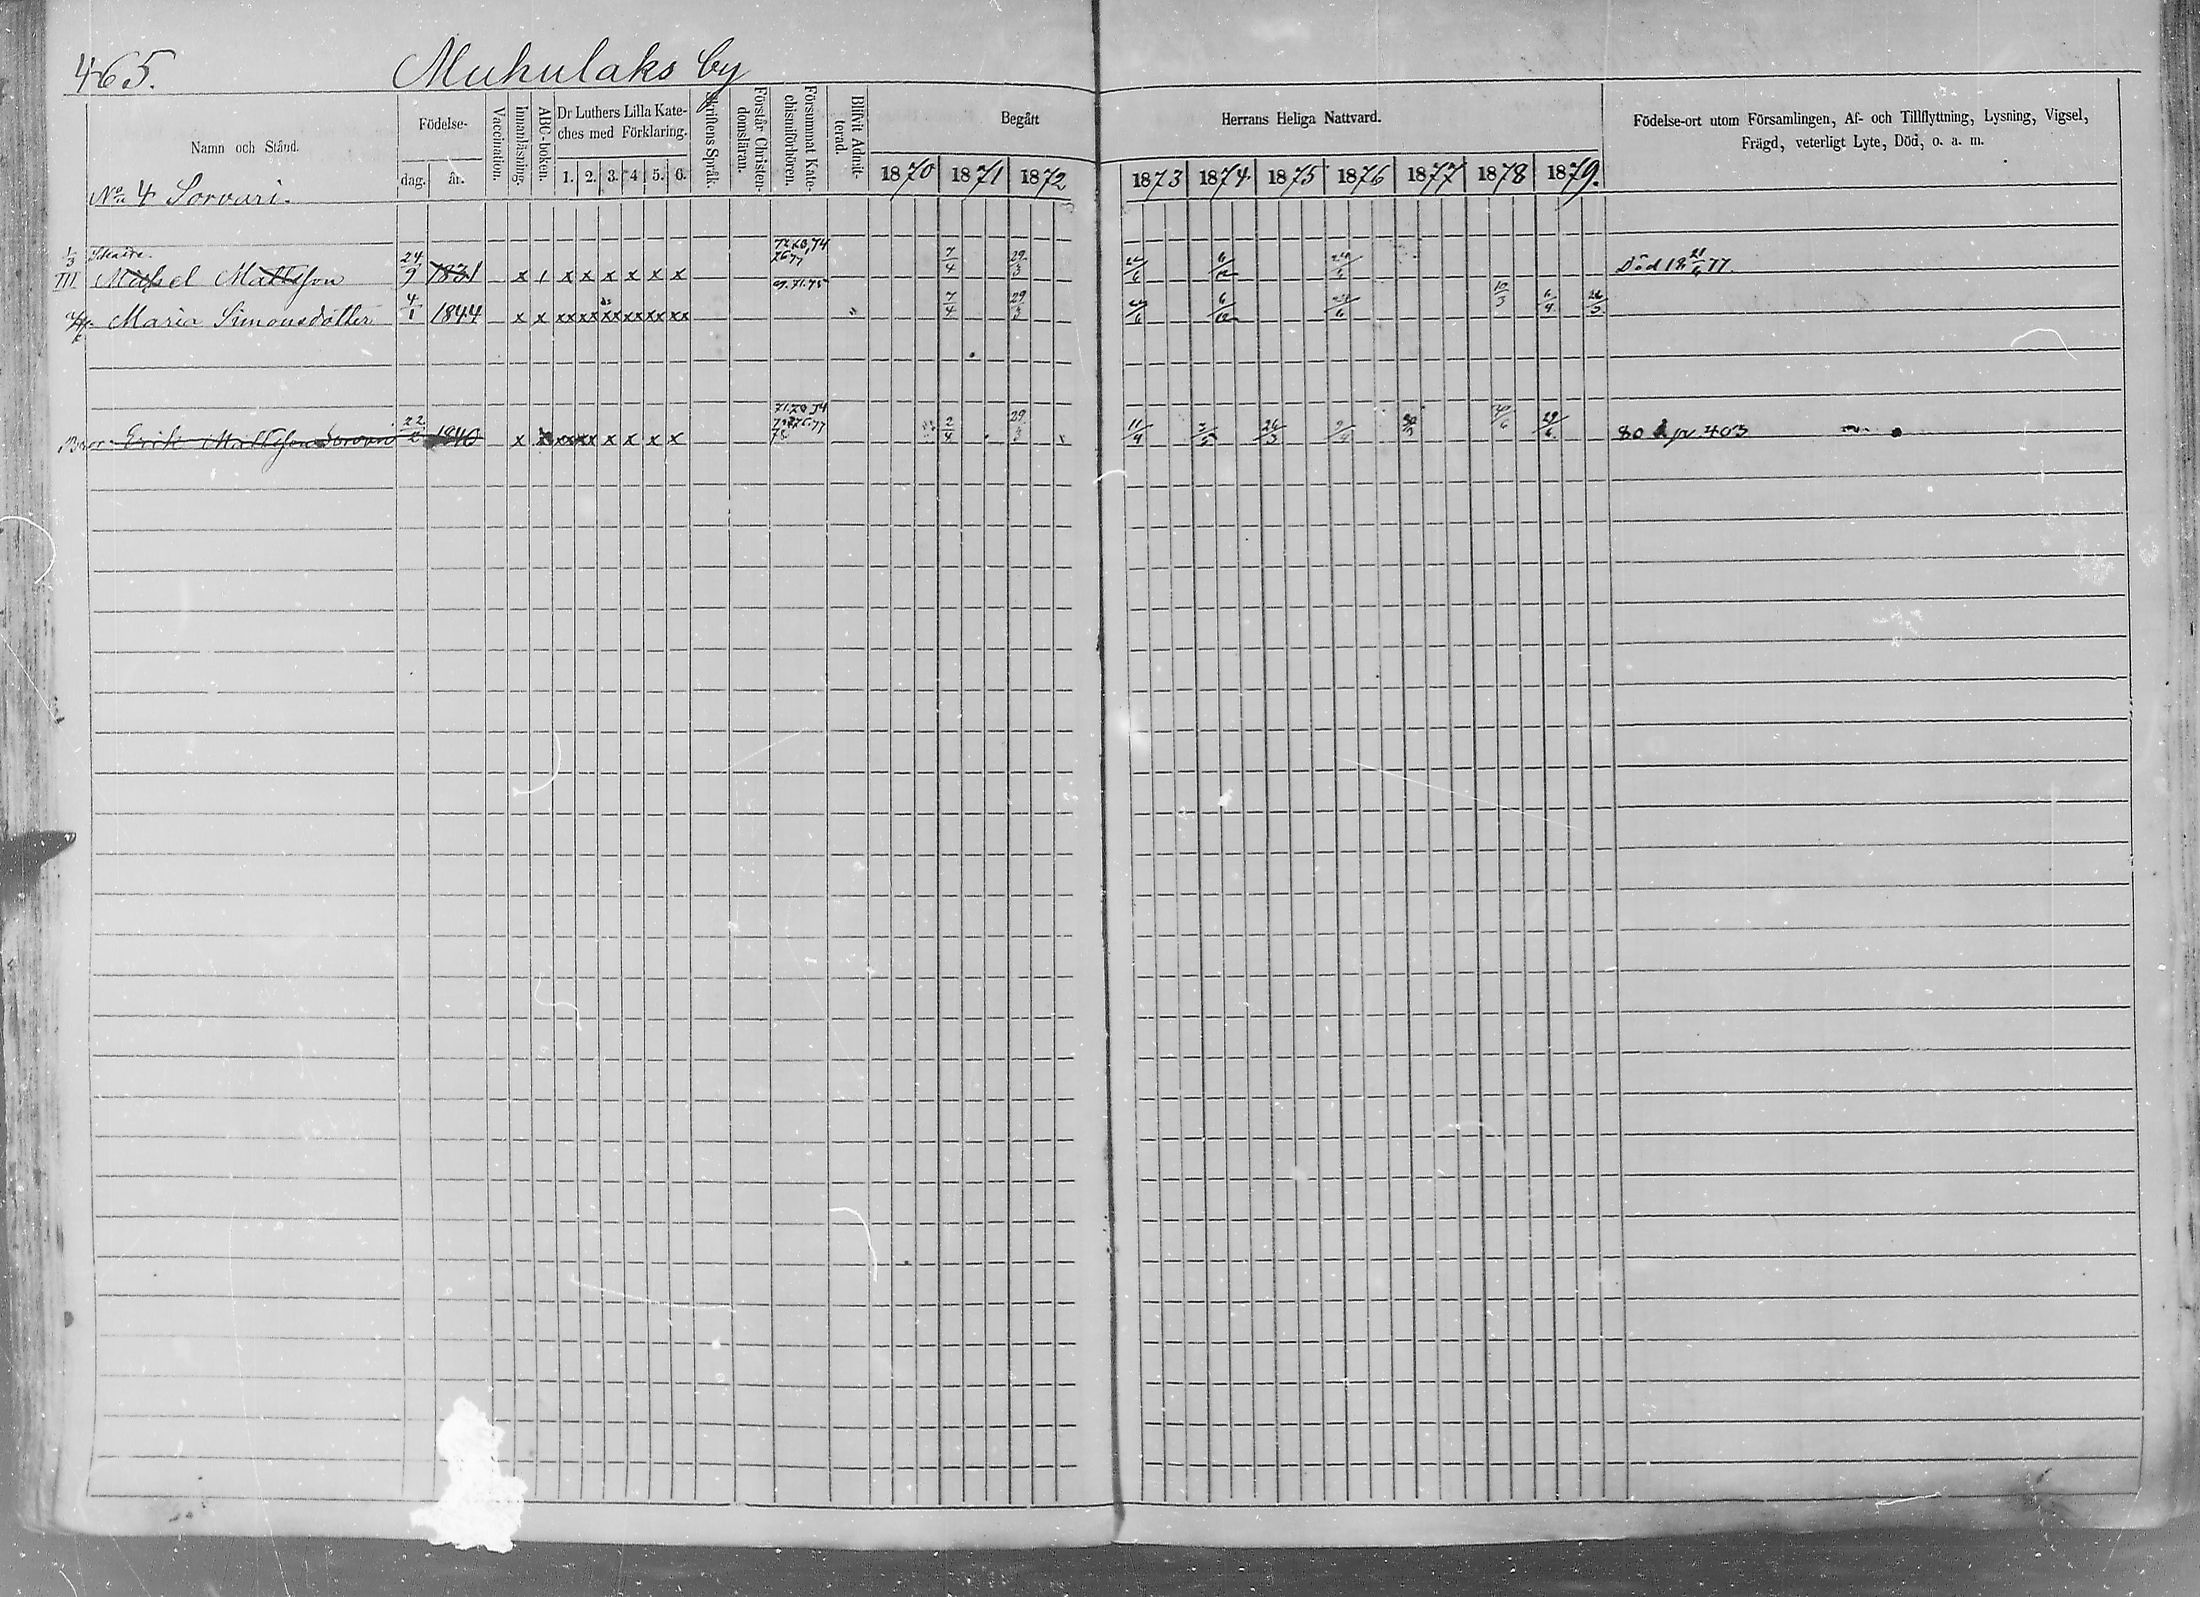 465. Muhulaks by
Namn och Stånd.
Födelse-
dag. år.
Vaccination.
Innanläsning.
ABC-boken.
Dr Luthers Lilla Kate-
ches med Förklaring.
1. 2. 3. 4 5. 6.
Skriftens Språk.
Förstår Christen-
domsläran.
Försummat Kate-
chismiförhören.
Blifvit Admit-
terad.
Begått
1870 1871 1872
Herrans Heliga Nattvard.
1873 1874 1875 1876 1877 1878 1879.
Födelse-ort utom Församlingen, Af- och Tillflyttning, Lysning, Vigsel,
Frägd, veterligt Lyte, Död, o. a. m.
No 4 Sorvari.
1/3
III Mattsson 24/9 1831 x 1 x x x x x x 7/4 29/3 6/12 Död 18 77
Maria Simonsdotter 4/1 1844 x x xx xx xx xx xx xx 7/4 29/3 6/12 10/3 6/4
Erik Mattsson Sorvari 22/2 1840 x x xx xx x x x x 2/4 29/3 11/4 26/3 29/6 80 p 403